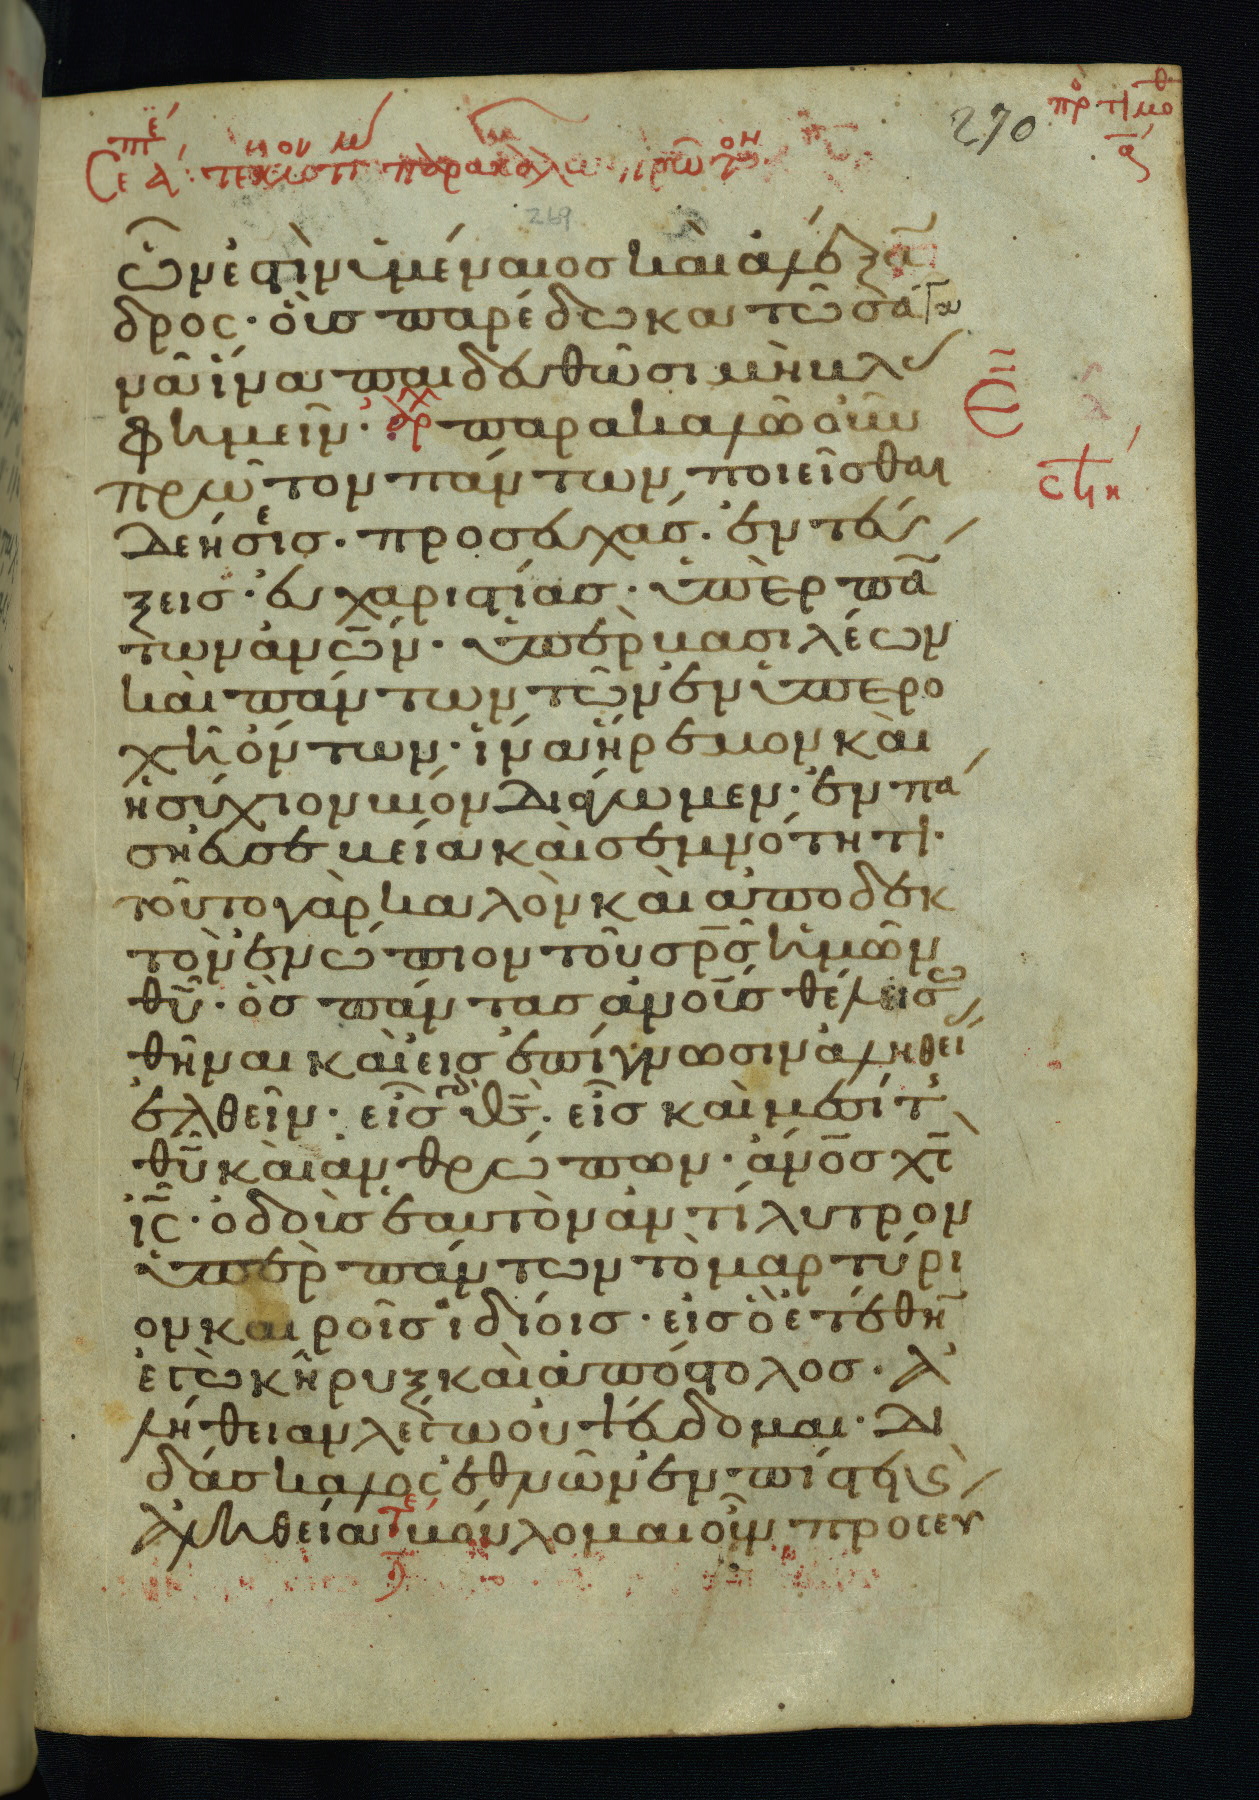 270
πρ τιμο θ
α
τεκνον τι παρακαλω πρωτον
269
ὧν ἐστὶν ὑμέναιοσ καὶ ἀλέξα̅
δρος· οὓσ παρέδωκα τῶ σατα
νᾶ ἵνα παιδευθῶσι μὴ βλασ
φημεῖν· ἀρχ παρακαλῶ οὖν
πρῶτον πάντων ποιεῖσθαι
δεήσεισ· προσευχάσ· ἐντεύ
ξεισ· εὐχαριστίασ· ὑπὲρ πα̅
των ἀνω̅ν· ὑπὲρ βασιλέων
καὶ πάντων τῶν ἐν ὑπερο
χῆ ὄντων· ἵνα ἤρεμον καὶ
ἡσύχιον βίον διάγωμεν· ἐν πά
ση εὐσεβεία καὶ σεμνότητι·
τοῦτο γὰρ καλὸν καὶ ἀποδεκ
τὸν ἐνώπιον τοῦ σρ̅σ ἡμῶν
θυ̅· ὃσ πάντασ ἀνο̅υσ θέλει σω
θῆναι καὶ εἰσ ἐπίγνωσιν ἀληθεί
ἐλθεῖν· εἷσ γὰρ θσ̅· εἷσ καὶ μεσίτ
θυ̅ καὶ ἀνθρώπων· ἄνο̅σ χσ̅
ἰς̅· ὁ δοὺσ ἑαυτὸν ἀντίλυτρον
ὑπὲρ πάντων τὸ μαρτύρι
ον καιροῖσ ἰδίοισ· εἰσ ὃ ἐτέθην
ἐγὼ κῆρυξ καὶ ἀπόστολοσ· ἀ
λήθειαν λέγω οὐ ψεύδομαι· δι
δάσκαλος ἐθνῶν ἐν πίστει κς
ἀληθεία τε βούλομαι οὖν προσευ
Ε̅
στη